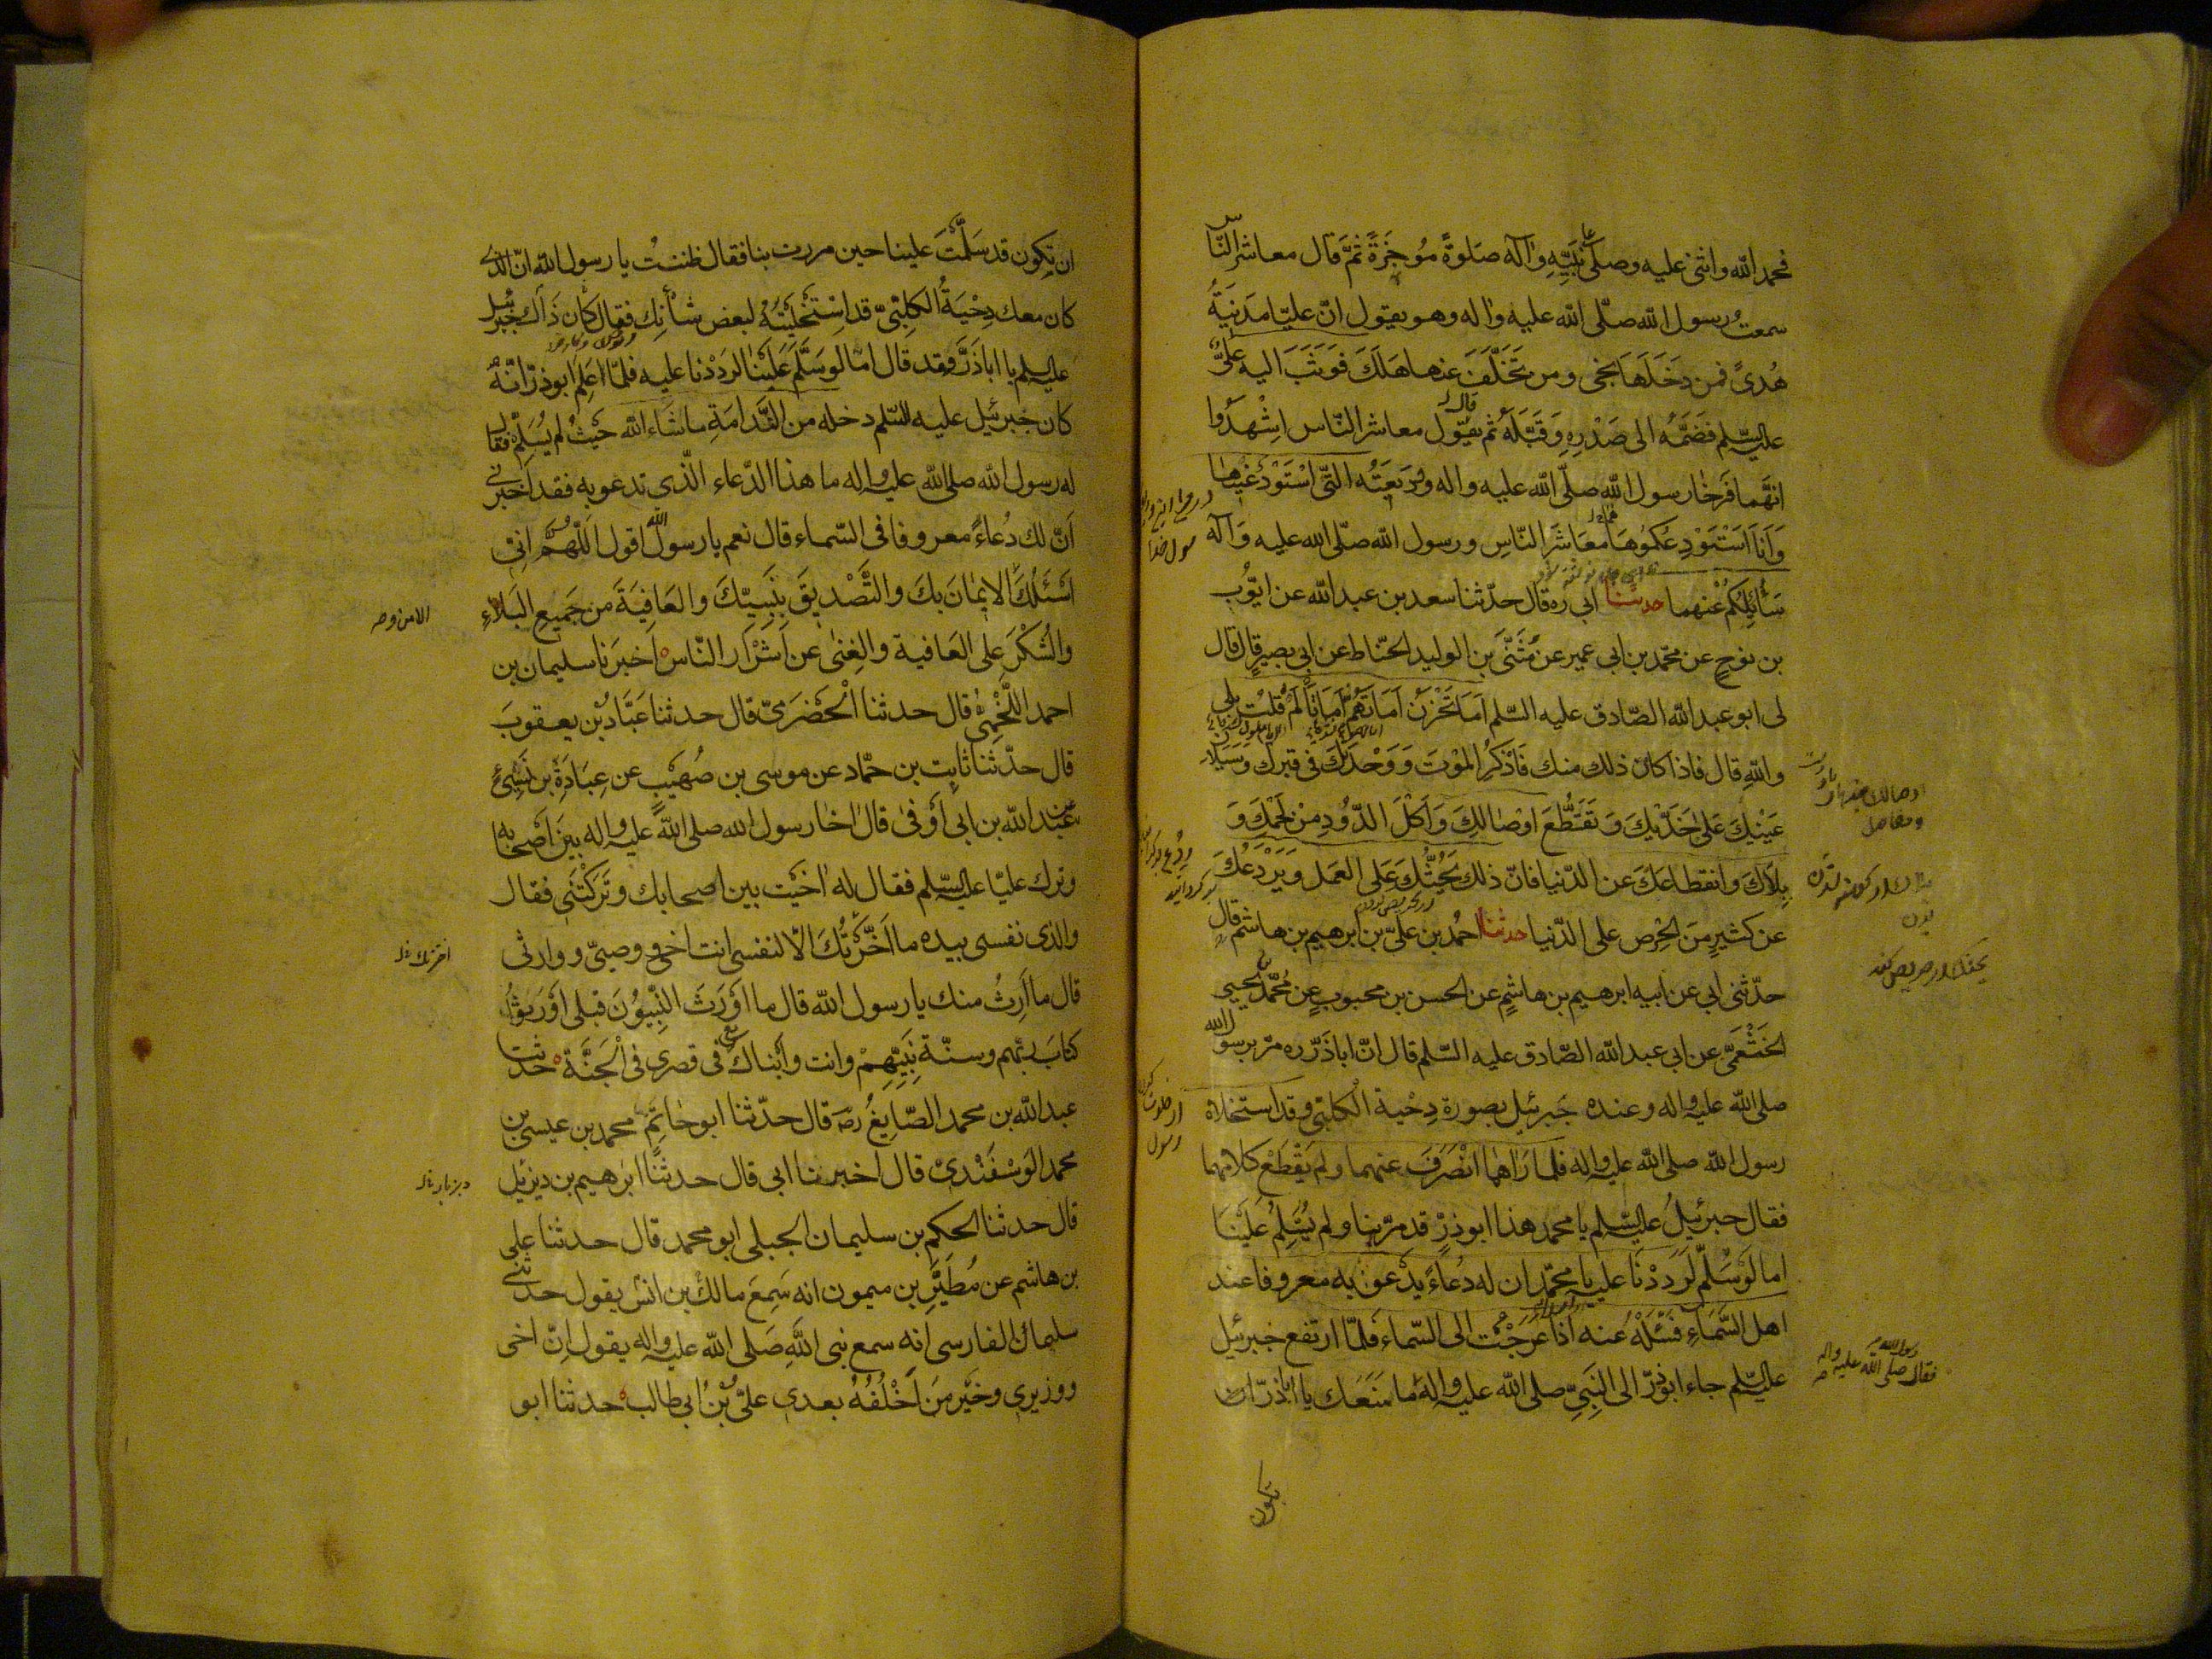 فحمد الله واثنى عليه وصلى على نبيه وآله صلوة موجزة ثم قال معاشر الناس
سمعت رسول الله صلى الله عليه واله وهو يقول ان عليا مدينة
هُدىً فمن دَخَلَها نجى ومن تَخَلَّفَ عنها هَلَكَ فوَثَبَ اليه علىٌّ
عليه السلم فضَمَّه الى صَدْرِه وَقَبَّلَهُ ثم يقول قال معاشر الناس اِشْهَدُوا
انهما فَرخا رسول الله صلى الله عليه واله ووديعَتُه التى اسْتَوْدَعنيها
وَاَنَا اَسْتَوْدِعُكُموُهَا معَاشَرَ الناسِ ورسول الله صلى الله عليه وَآله
سَائِلُكُم عنهما حدثنا ابى ره قال حدّثنا سعد بن عبد الله عن ايّوُب
بن نوحٍ عن محمّد بن ابى عمير عن مُثَنَّى بن الوليد الحنّاط عن ابى بصيرٍ قال قال
لى ابو عبد الله الصّادق عليه السّلم اَمَا تَحْزَنُ اَمَا تَهُمُّ اَمَا تَألَمُ قُلتُ بلى
والله قال فاذا كان ذلك منك فَاذْكُرِ الموْتَ وَوَحْدَتَكَ فى قبرك وَسَيَلان
عَيْنَيْكَ عَلى خَدَّيْكَ وَتَقَطُّعَ اوْصالِكَ وَاَكْلَ الدّوُدِ مِنْ لَحْمِكَ وَ
بِلَاكَ وانقطاعَكَ عن الدّنيا فانّ ذلك يَحُثُّكَ عَلى العَمل وَيَرْدَعُكَ
عن كثيرٍ مِنَ الحِرْص على الدّنيا حدثنا احمدُ بن علىّ بن ابرهيم بن هاشم قال
حدّثنى ابى عن ابيه ابرهيم بن هاشمٍ عن الحسن بن محبوبٍ عن محمّد بن يحيى
الخَثْعَمىّ عن ابى عبد الله الصّادق عليه السّلم قال انّ اباذَرّ ره مرّ برسول الله
صلى الله عليه واله وعنده جَبرئيل بصورة دِحْية الكلبىّ وقد استخلاهُ
رسول الله صلى الله عليه واله فلما رَاهما انْصَرَفَ عنهما ولم يَقْطَعْ كلامهما
فقال جبرئيلُ عليه السّلم يا محمد هذا ابوذرّ قد مرّ بنا ولم يُسَلِّمْ عَلَيْنا
اما لَوْ سَلَّمَ لَرَدَدْنَا عليه يا محمّد ان له دُعاءً يَدْعو به معروفا عند
اهل السَّمَاءِ فَسَئَلْهُ عنه اذا عَرَجْتُ الى السّماء فلمّا ارتفع جبرئيل
عليه السّلم جاء ابوذرّ الى النّبىّ صلى الله عليه واله ما مَنَعَك يا اباذرّ ان
فقال رسول الله صلى الله عليه واله
تكون
ان تكون قد سَلَّمْتَ علينا حين مررت بنا فقال ظننتُ يا رسول الله انّ الذى
كان معك دِحْيَةُ الكلبىّ قد اسْتَخْلَيْتَهُ لبعض شأنك فقال كان ذاك جبرئيل
عليه السلم يا اباذَرّ وقد قال اما لو سَلَّمَ عَلَيْنَا لرَدَدْنا عليه فلمّا اعلم ابوذرّ انّهُ
كان جبرئيل عليه السّلم دخله من النّدامَةِ ماشاء الله حَيْثُ لم يُسَلِّمْ فقال
له رسول الله صلى الله عليه واله ما هذا الدّعاء الّذى تدعو به فقد اخبرنى
اَنّ لك دُعاءً معروفا فى السّماء قال نعم يا رسول الله اقول اَللّهُمَّ انى
اَسْئَلُكَ الايمانَ بكَ والتَّصْديقَ بِنَبيِّكَ والعَافِيَةَ من جَميعِ البَلاءِ
الامن وصر
والشُكْرَ على العَافية والغِنى عن اَشْرار النّاس اَخبرَنا سليمان بن
احمد اللَّخْمِىُّ قال حدثنا الْحَضْرَمىّ قال حدثنا عَبَّادُ بْن يعقوبَ
قال حدّثنا ثابت بن حمّاد عن موسى بن صُهَيْبٍ عن عِبَادَةَ بن نَسِىءٍ
عن عبد الله بن ابى اَوْفى قال اخا رسول الله صلى الله عليه واله بينَ اَصْحابه
وترك عليّا عليه السّلم فقال له اخَيْت بين اصحابك وتَرَكْتَنى فقال
والذى نفسى بيده ما اَخَّرْتُكَ الّا لنفسى انت اخى ووصيّى ووارثى
قال ما اَرِثُ منك يا رسول الله قال ما اَوْرَثَ النَّبيوُّنَ قبلى اَوْرَثوُا
كتابَ ربّهم وسنّة نَبيّهِمْ وانت وابْناكَ معى فى قصرى فى الْجَنَّة حدثنا
عبد الله بن محمد الصّايغُ رضه قال حدّثنا ابو حاتِمٍ محمد بن عيسى بن
محمد الوَسْقَنْدىْ قال اخبرنا ابى قال حدثنا ابرهيم بن ديزيل
قال حدثنا الحكم بن سليمان الجبلى ابو محمد قال حدثنا على
بن هاشم عن مُطَيَّرِ بن ميمون انه سَمِعَ مالكَ بن انس يقول حدثنى
سلمان الفارسى انه سمع نبى اللهِ صَلى الله عليه واله يقول اِنّ اخى
ووزيرى وخَيْرَ مَنْ اَخْلُفُهُ بعدى علىّ بْنُ ابى طالب حدثنا ابو